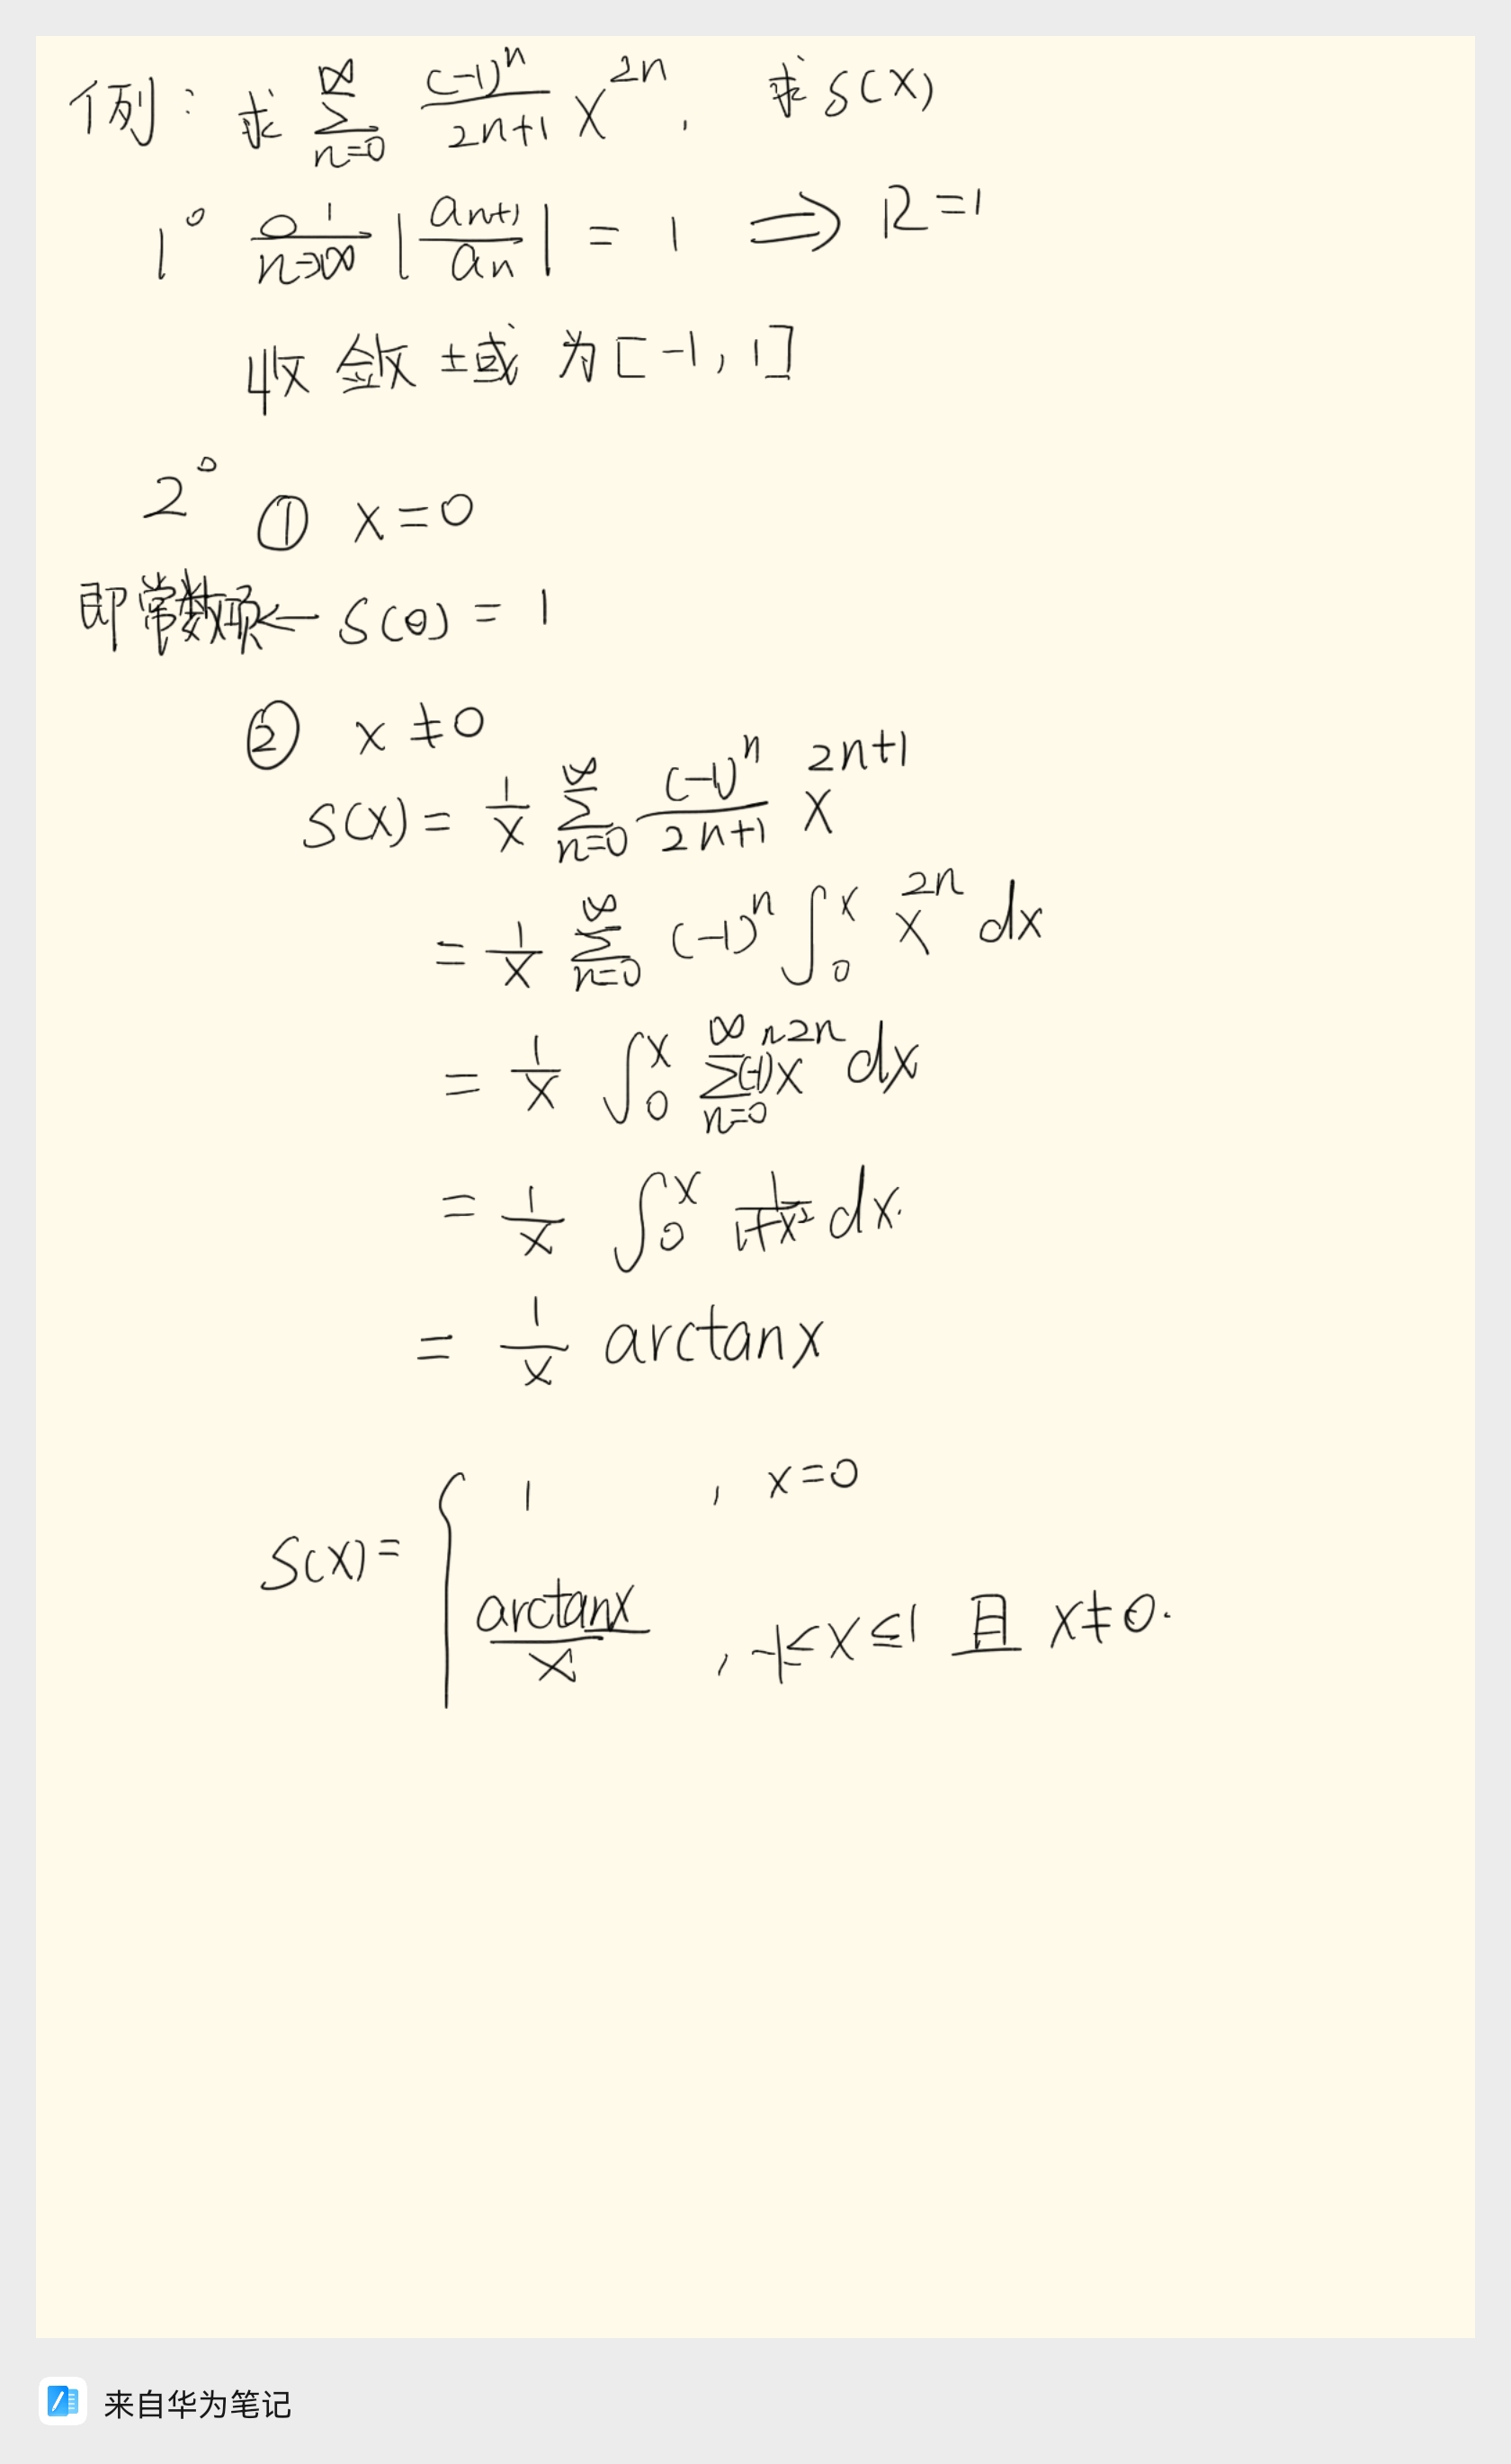 例: 求 ∑_{n=0}^{∞} \frac{(-1)^n}{2n+1} x^{2n}, 求 S(x)
1° \frac{0 1}{n→∞} |\frac{a_{n+1}}{a_n}| = 1 ⟹ R=1
收敛域为[-1, 1]
2° ① x=0
即常数项← S(0) = 1
② x≠0
S(x) = \frac{1}{x} ∑_{n=0}^{∞} \frac{(-1)^n}{2n+1} x^{2n+1}
= \frac{1}{x} ∑_{n=0}^{∞} (-1)^n ∫_0^x x^{2n} dx
= \frac{1}{x} ∫_0^x ∑_{n=0}^{∞} (-1)^n x^{2n} dx
= \frac{1}{x} ∫_0^x \frac{1}{1+x^2} dx.
= \frac{1}{x} arctanx
S(x) = { 1 , x=0
\frac{arctanx}{x} , -1≤x≤1 且 x≠0.
来自华为笔记